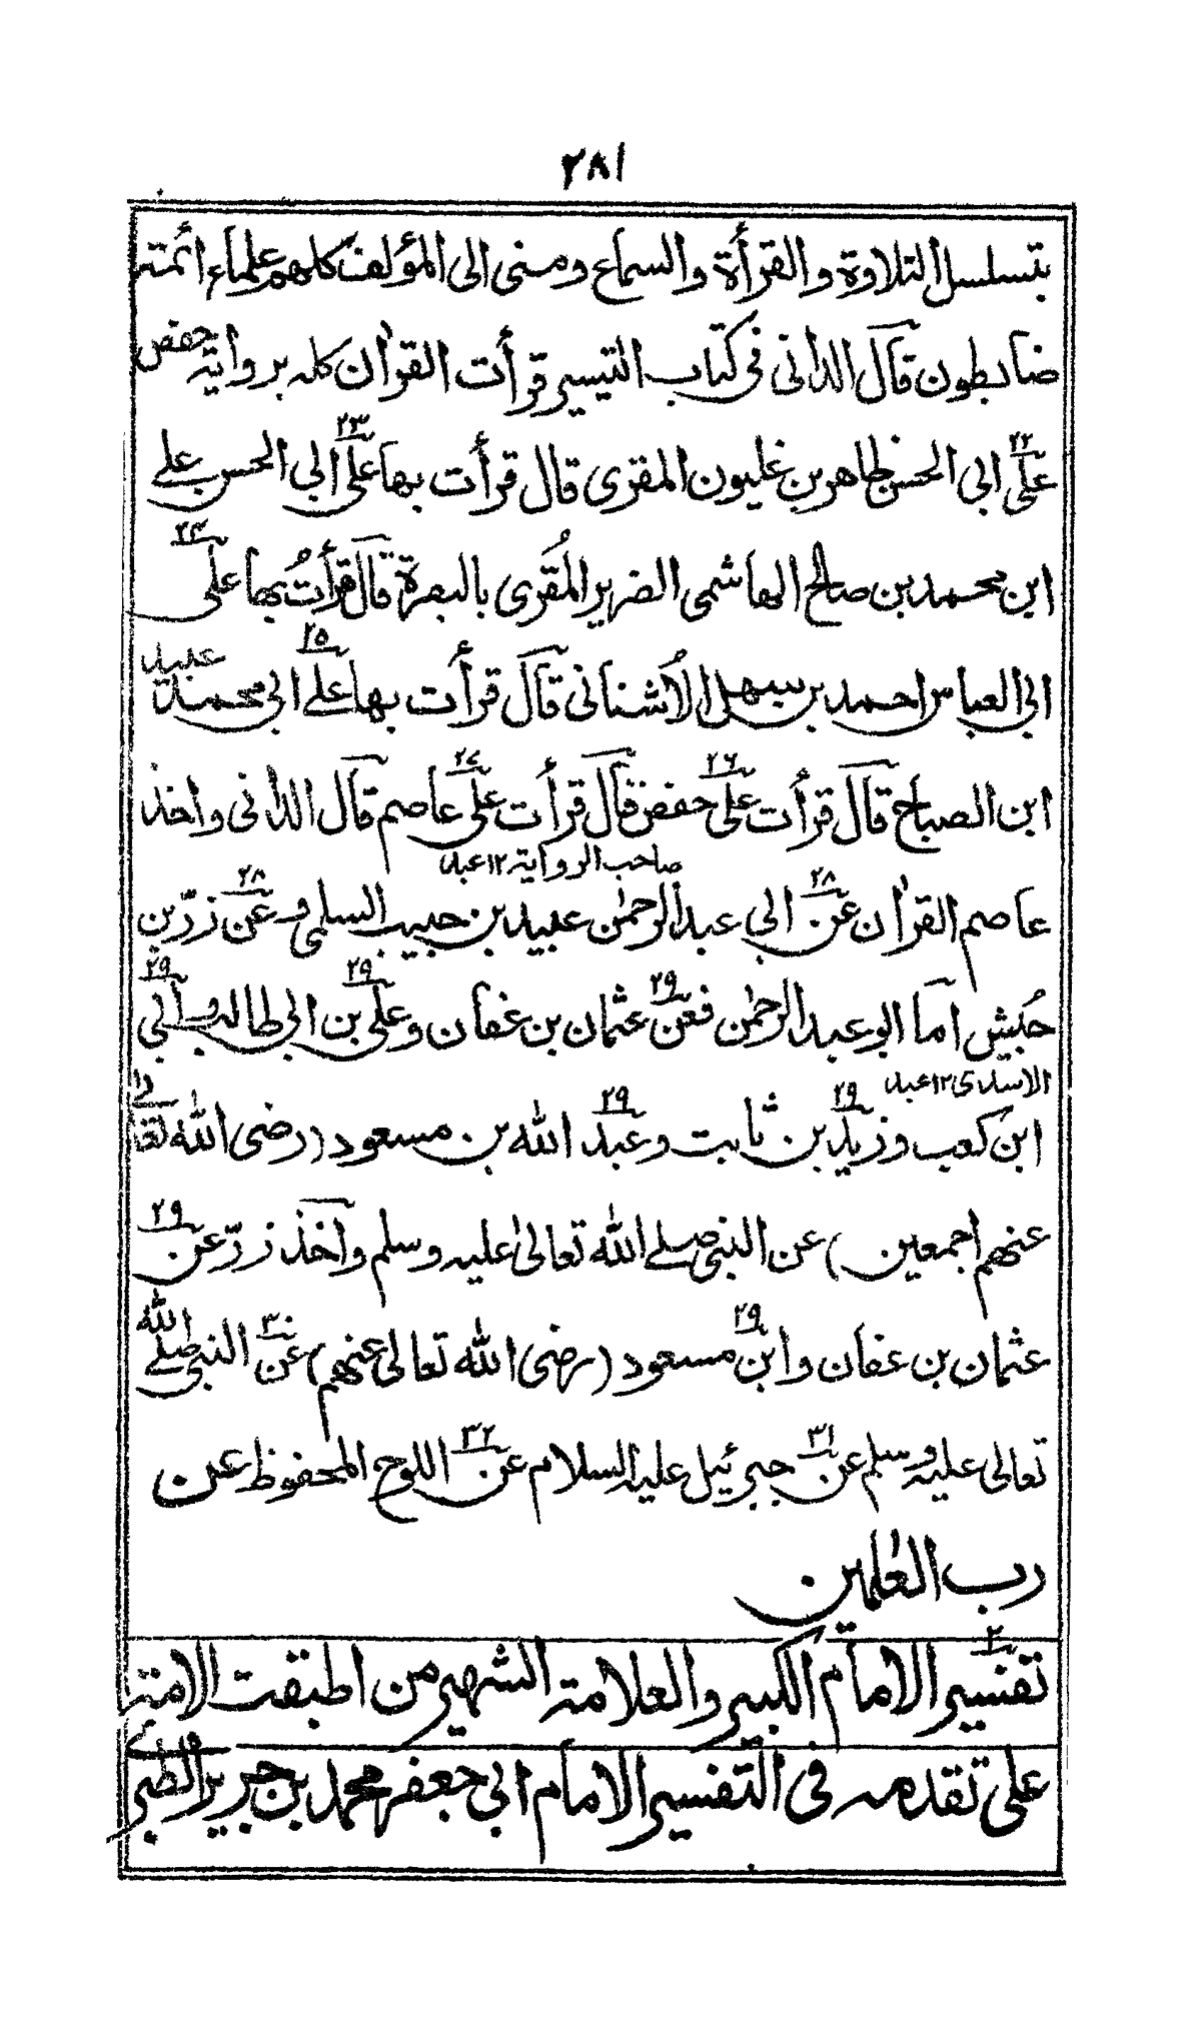 ٢٨١
بتسلسل التلاوة والقرأة والسماع ومنى الى المؤلف كلهم علماء ائمته
ضابطون قال الدانى فى كتاب التيسير قرأت القرأن كله بروايته حفص
٢٢ ٢٣
على ابى الحسن طاهر بن غلبون المقرى قال قرأت بها على ابي الحسن علے
٢٤
ابن محمد بن صالح الهاشمى الضرير المُقرى بالبصرة قال قرأتُ بها على
٢٥
ابى العباس احمد بن سهل الاُشنانى قال قرأت بها علے ابى محمد عبيد
٢٦ ٢٧
ابن الصباح قال قرأت على حفص قال قرأت على عاصم قال الدانى واخذ
صاحب الرواية ١٢ عبد
٢٨ ٢٨
عاصم القرأن عن ابي عبد الرحمٰن عبيد بن حبيب السلمى وعن زرّ بن
٢٩ ٢٩ ٢٩
حُبيش اما ابو عبد الرحمٰن فعن عثمان بن عفان وعلى بن ابى طالب وأبي
الاسدى ١٢ عبد
٢٩ ٢٩
ابن كعب وزيد بن ثابت وعبد الله بن مسعود (رضى الله تعالىٰ
٢٩
عنهم اجمعين) عن النبى صلے الله تعالىٰ عليه وسلم واخذ زرّ عن
٢٩ ٣٠
عثمان بن عفان وابن مسعود (رضى الله تعالى عنهم) عن النبى صلے الله
٣١ ٣٢
تعالى عليه وسلم عن جبرئيل عليه السلام عن اللوح المحفوظ عن
رب العٰلمين
٢
تفسير الامام الكبير والعلامته الشهير من اطبقت الامته
على تقدمه فى التفسير الامام ابى جعفر محمد بن جرير الطبرى